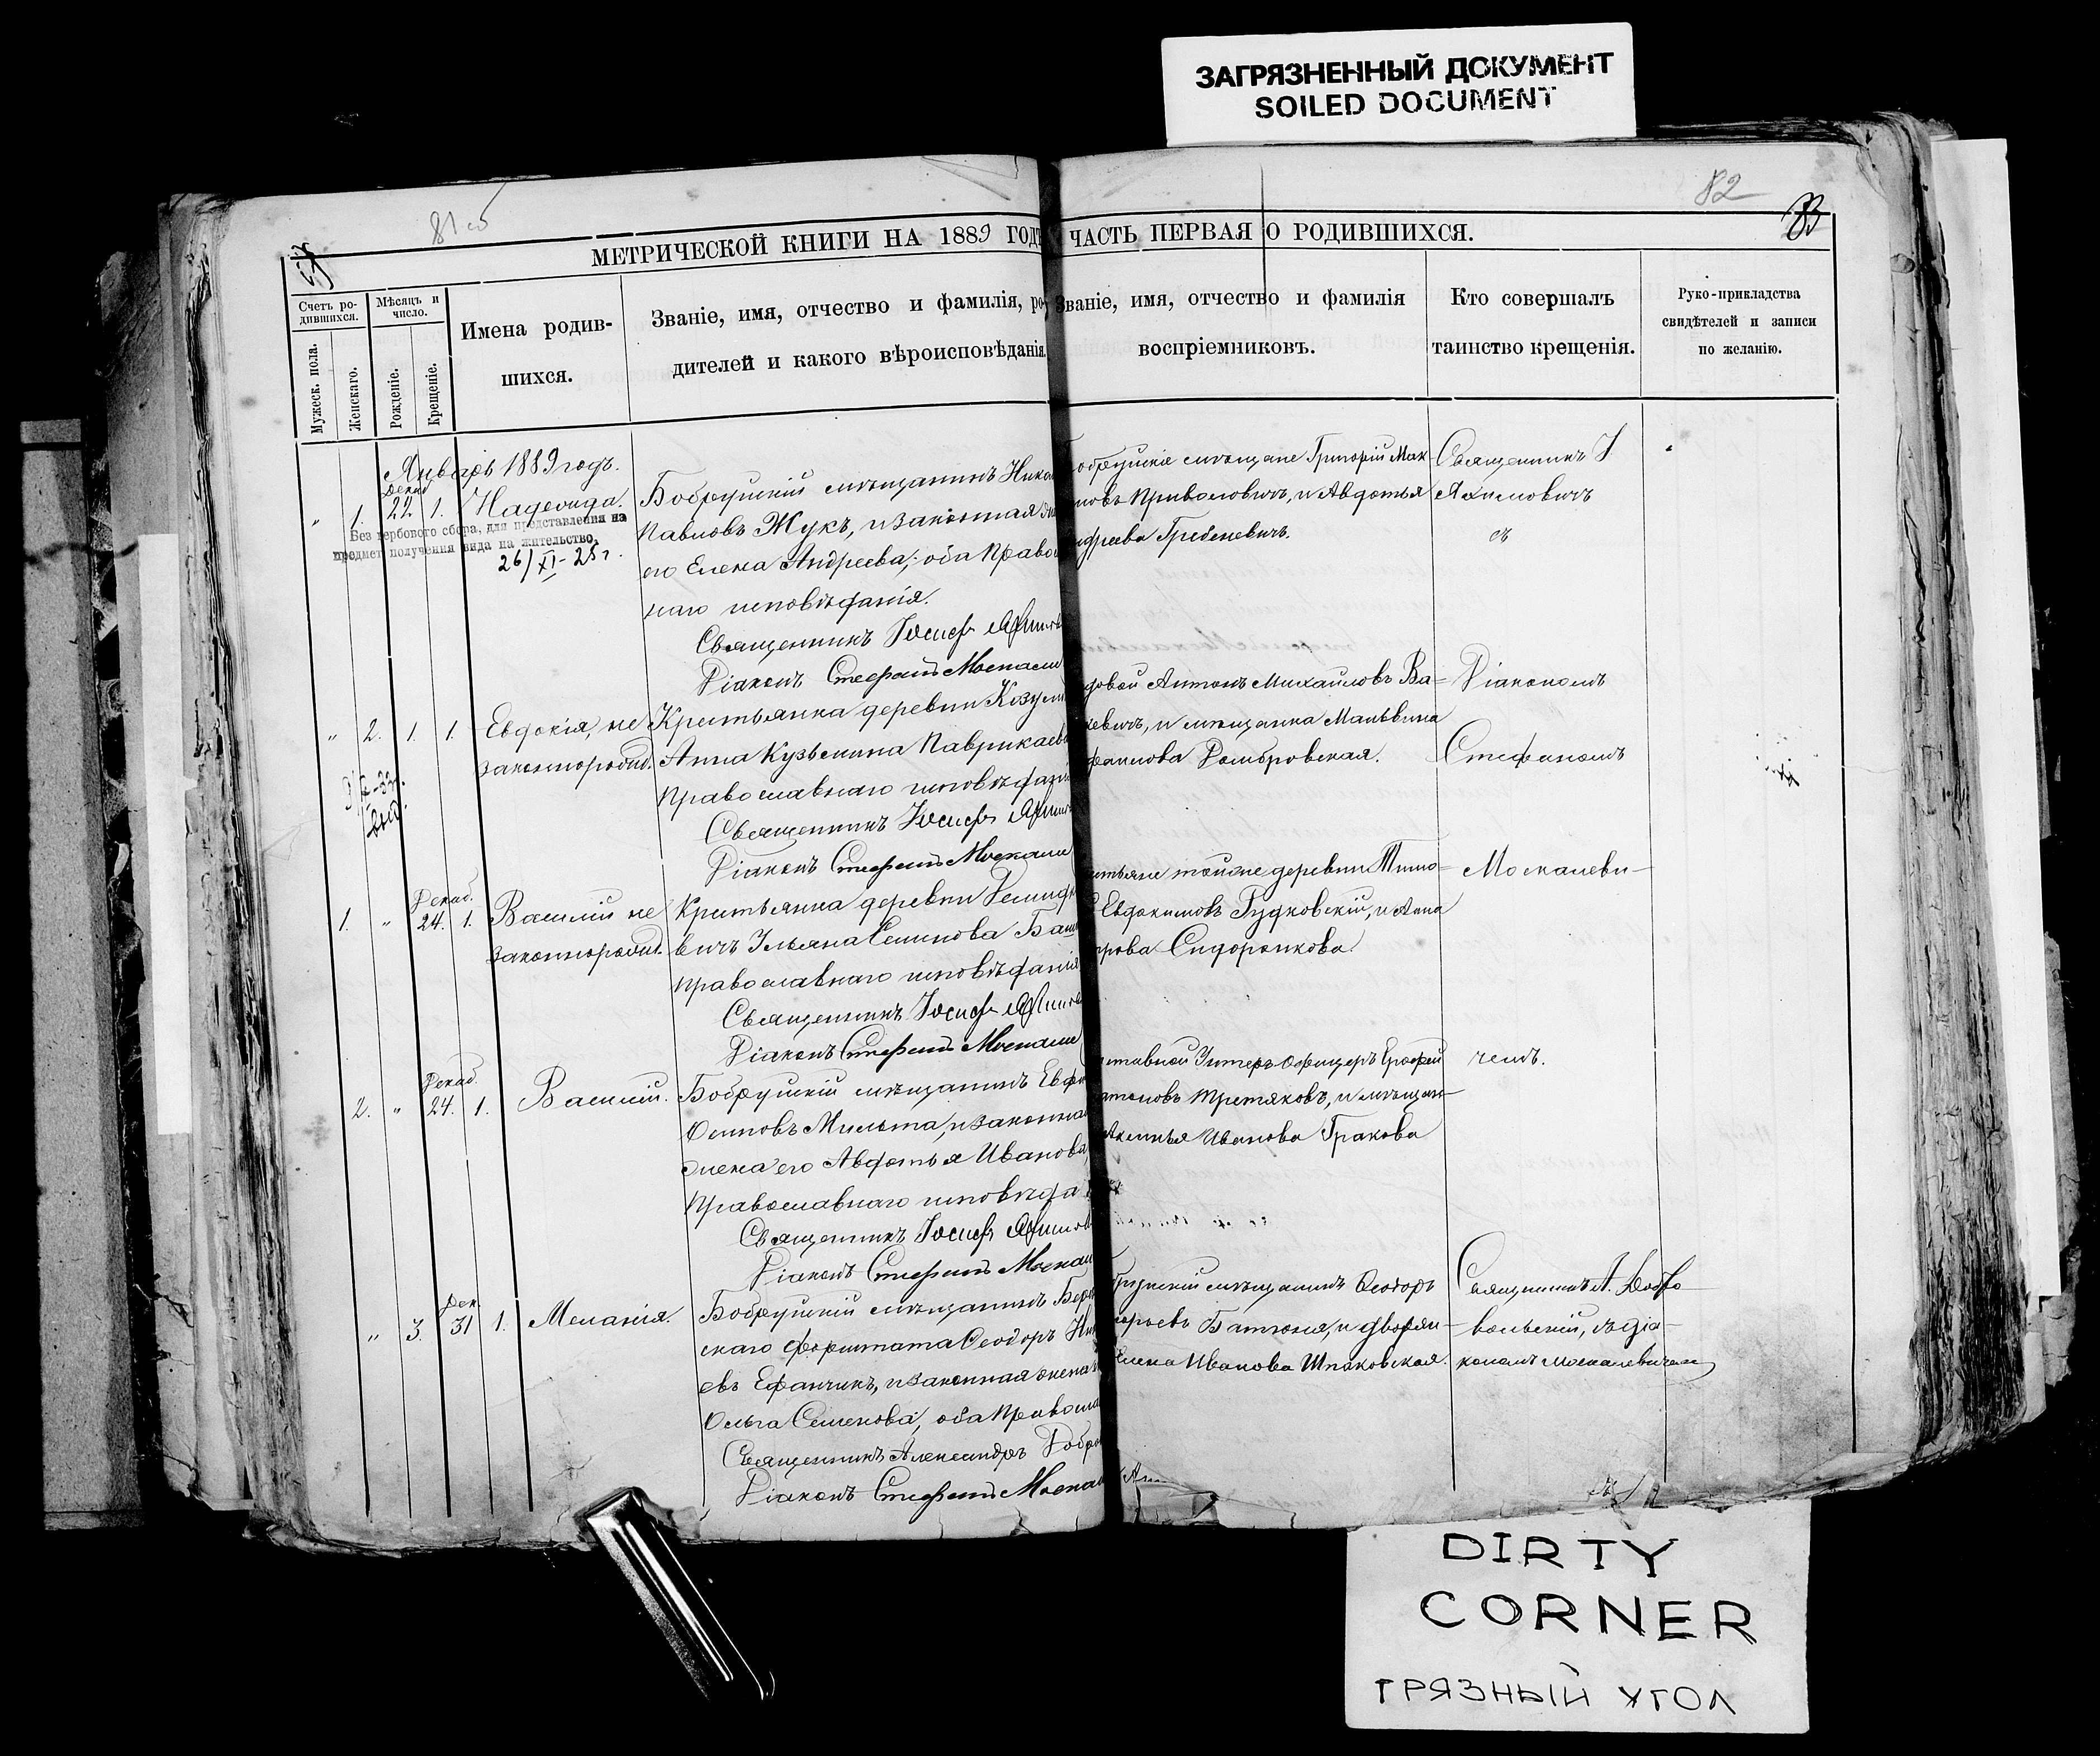 ЗАГРЯЗНЕННЫЙ ДОКУМЕНТ
SOILED DOCUMENT
81 об
82
83
МЕТРИЧЕСКОЙ КНИГИ НА 1889 ГОДЪ ЧАСТЬ ПЕРВАЯ О РОДИВШИХСЯ.
Счетъ ро-
дившихся.
Мужеск. пола.
Женскаго.
Мѣсяцъ и
число.
Рожденіе.
Крещеніе.
Имена родив-
шихся.
Званіе, имя, отчество и фамилія, ро-
дителей и какого вѣроисповѣданія.
Званіе, имя, отчество и фамилія
воспріемниковъ.
Кто совершалъ
таинство крещенія.
Руко-прикладства
свидѣтелей и записи
по желанію.
Январь 1889 годъ.
" 1. Декаб 22 1. Надежда.
Без гербового сбора, для представления на
предмет получения вида на жительство.
26/XI-25 г.
Бобруйскій мѣщанинъ Нико
Павловъ Жукъ, и законная же
его Елена Андреева, оба Правос
наго исповѣданія.
Священникъ Іосифъ
Діаконъ Стефанъ Москале
обруйскіе мѣщане Григорій Мак-
имовъ Приволовичъ, и Авдотья
ндреева Гребеневичъ.
Священникъ І.
Акимовичъ
съ
" 2. 1. 1. Евдокія, не
законнорожд.
Крестьянка деревни Козули
Анна Кузьмина Лаврикаев
Православнаго исповѣдані
Священникъ Іосифъ
Діаконъ Стефанъ Москале
довой Антонъ Михайловъ Ва-
кевичъ, и мѣщанка Мальвина
Домбровская.
Діакономъ
Стефаномъ
1. " Декаб. 24. 1. Василій не
законнорожд.
Крестьянка деревни
вичъ Ульяна Семенова Баш
Православнаго исповѣданія
Священникъ Іосифъ
Діаконъ Стефанъ Москале
стьяне тойже деревни Тимо-
Евдокимовъ Рудковскій, и Анна
трова Сидоренкова.
Москалеви-
2. " Декаб. 24. 1. Василій.
Бобруйскій мѣщанинъ Евфи
Осиповъ Мильта, и законная
жена его Авдотья Иванова,
Православнаго исповѣда
Священникъ Іосифъ
Діаконъ Стефанъ Москал
ставной Унтеръ-Офицеръ Ерофей
Третяковъ, и мѣщан-
Акинья Иванова Гракова
чемъ.
" 3. Дек. 31 1. Меланія.
Бобруйскій мѣщанинъ Бере
скаго форштата Ѳеодоръ Ни
евъ Ефанчикъ, и законная жена
Ольга Семенова, оба Правосла
Священникъ Александръ Добро
Діаконъ Стефанъ Москал
бруйскій мѣщанинъ Ѳеодоръ
и дворян-
Елена Иванова Шпаковская.
Священникъ А. Добро-
вольскій, съ діа-
кономъ Москалевичемъ
DIRTY
CORNER
ГРЯЗНЫЙ УГОЛ